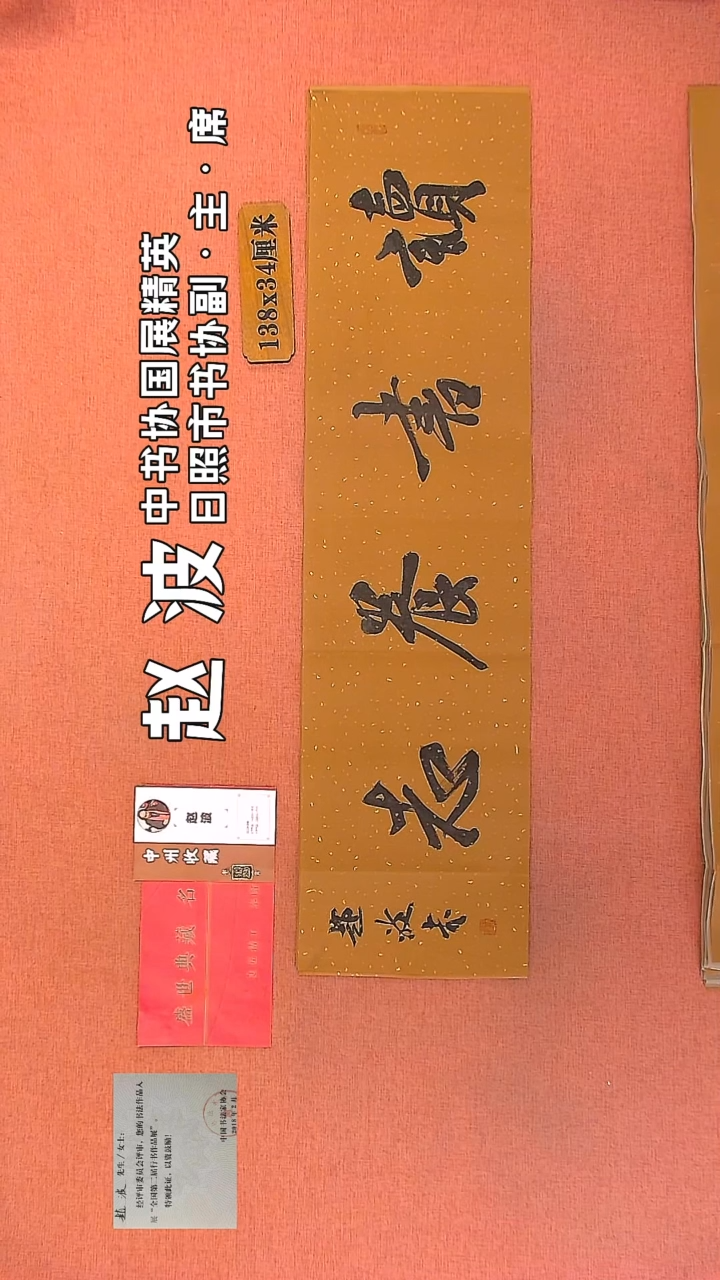 赵 波
中书协国展精英
日照市书协副·主·席
138x34厘米
讀書養
赵波
中州收展
盛世典藏 名
赵 波 先生/女士:
经评审委员会评审，您的书法作品入
展“全国第二届行书作品展”。
特颁此证，以资鼓励！
中国书法家协会
2018年2月